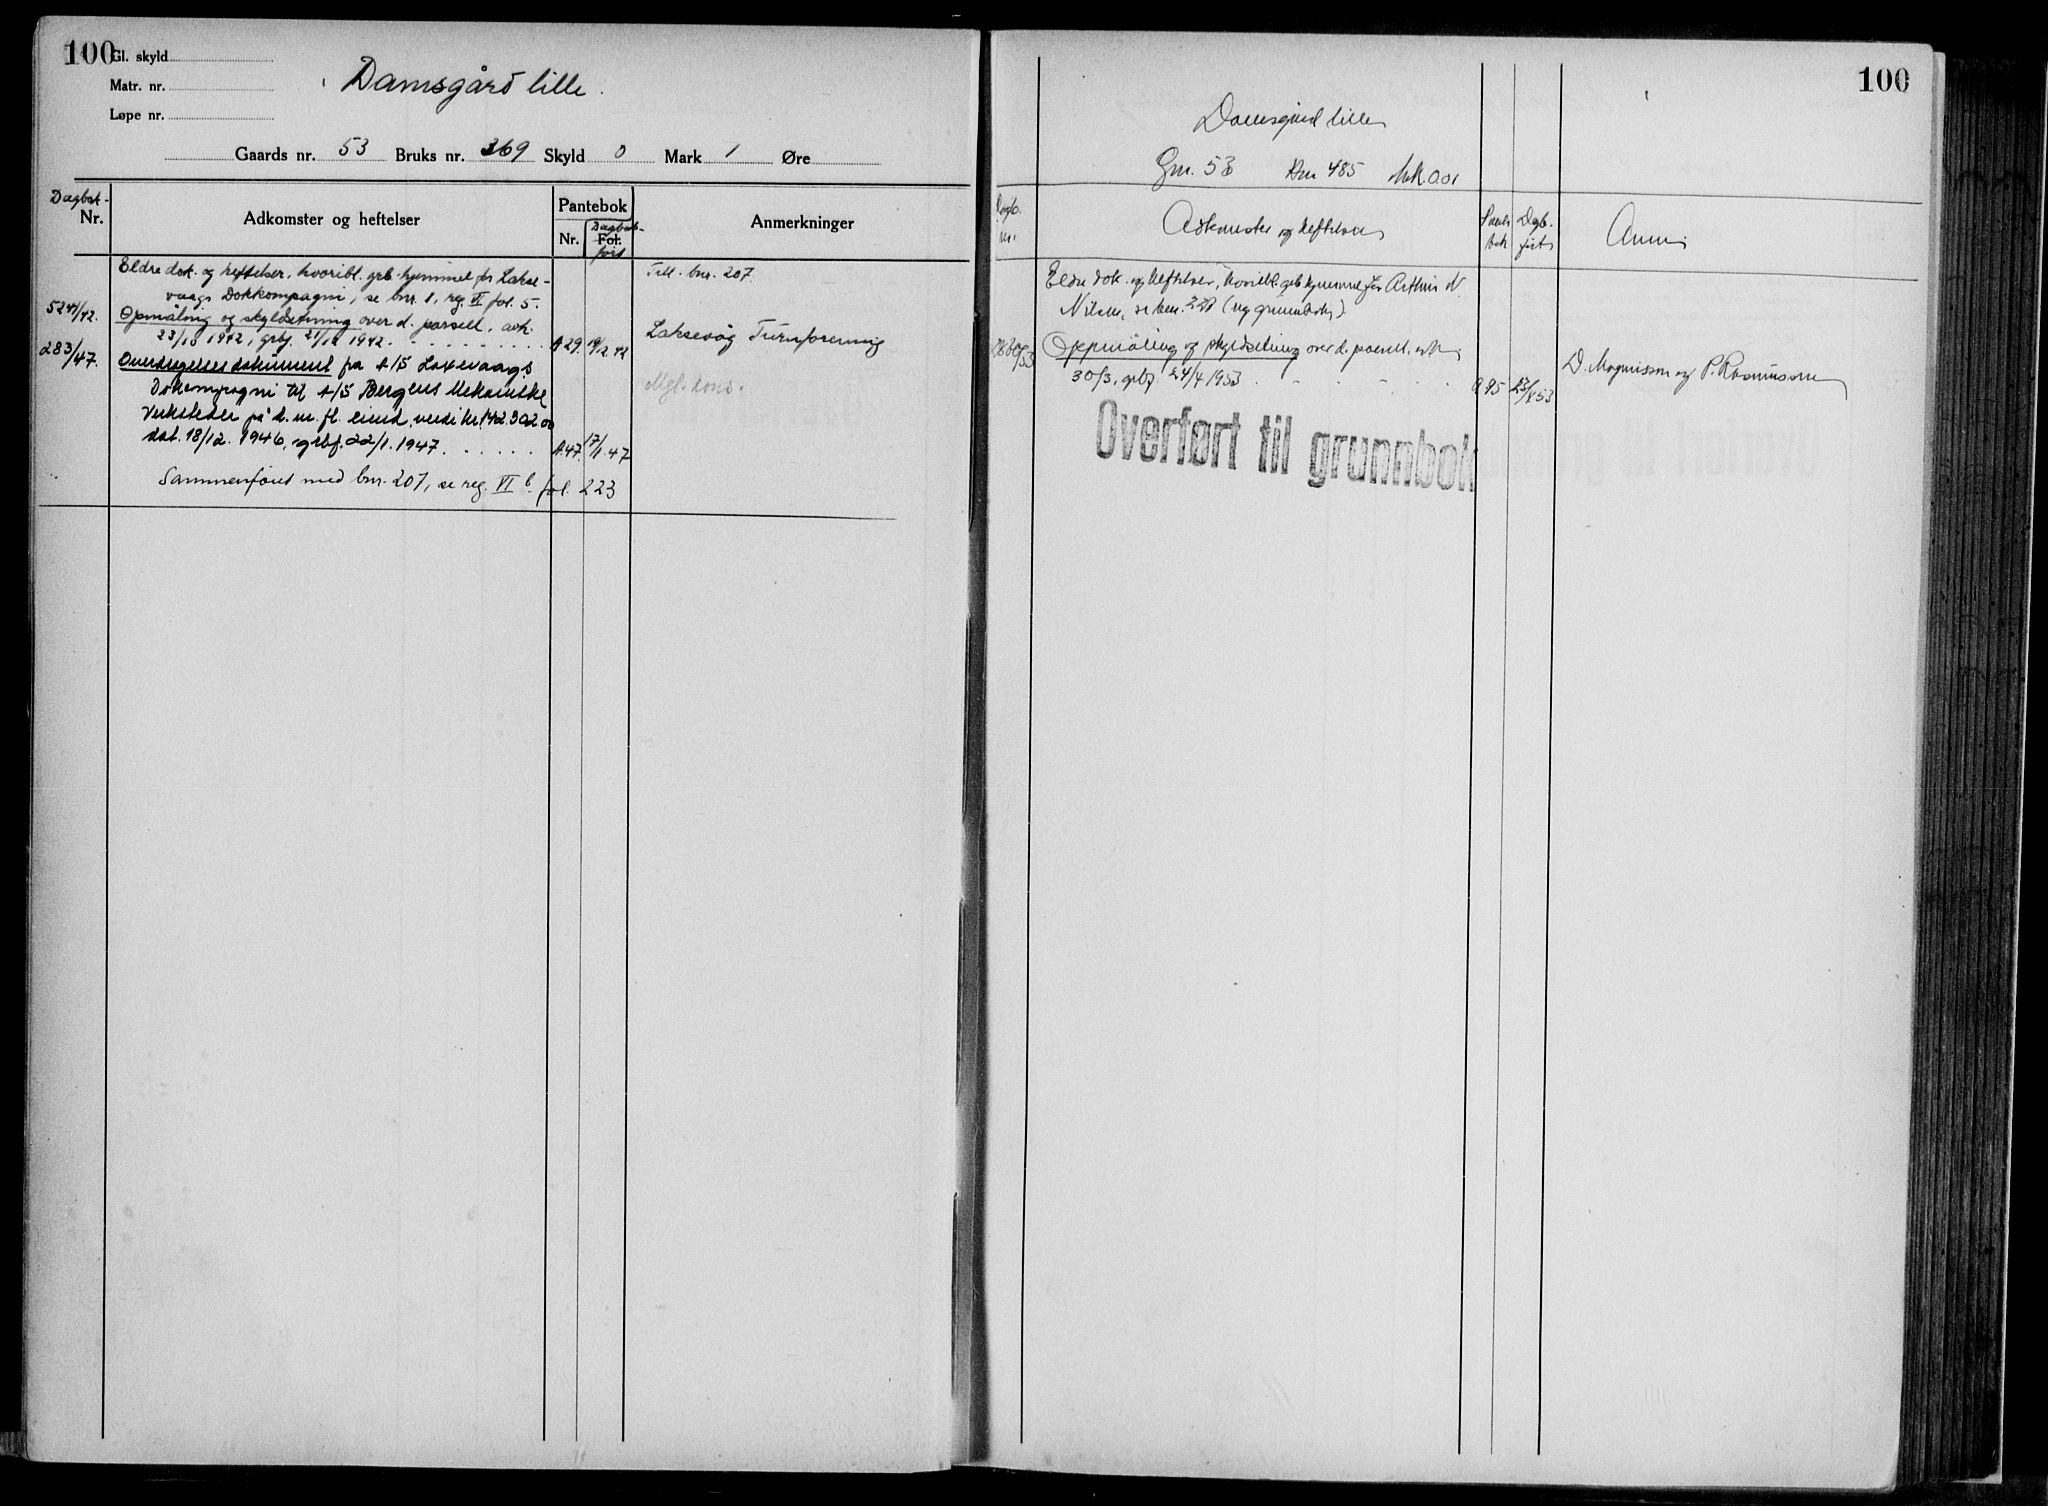 100
Gl. skyld
Matr. nr.
Løpe nr.
Damsgård lille.
Gaards nr. 53 Bruks nr. 369 Skyld 0 Mark 1 Øre
Dagbok-
Nr.
Adkomster og heftelser
Pantebok
Nr.
Dagbok-
Fol.
ført
Anmerkninger
Eldre dok. og heftelser, hvoribl. grb. hjemmel for Lakse-
vaags Dokkompagni, se bnr. 1, reg. VI fol. 5.
Till. bnr. 207.
Opmåling og skyldsetning over d. parsell, avh.
23/10 1942, grbf. 21/12 1942
A 29.
Laksevåg Turnforening
283/47.
Overdragelses dokument fra A/S Laxevaags
Dokcompagni til A/S Bergens Mekaniske
Verksteder på d. m. fl. eiend.
dat. 18/12. 1946, grbf. 22/1. 1947
A.47. 17/1.47
Mgl. kons.
Sammenføiet med bnr. 207, se reg. VI b. fol. 223
100
Damsgård lille
Gnr. 53 Bnr 485 Mk. 0.01
Dagb.
nr.
Adkomster og heftelser
bok
Dagb.
ført
Anm.
Eldre dok. og heftelser, hvoribl. grb hjemmel for Arthur N.
Nilsen, se bnr. 228 (ny grunnbok).
Oppmåling og skyldsetning over d. parsell, avh.
30/3, grbf. 24/4 1953
D. Magnusson og P. Rasmussen
Overført til grunnbok